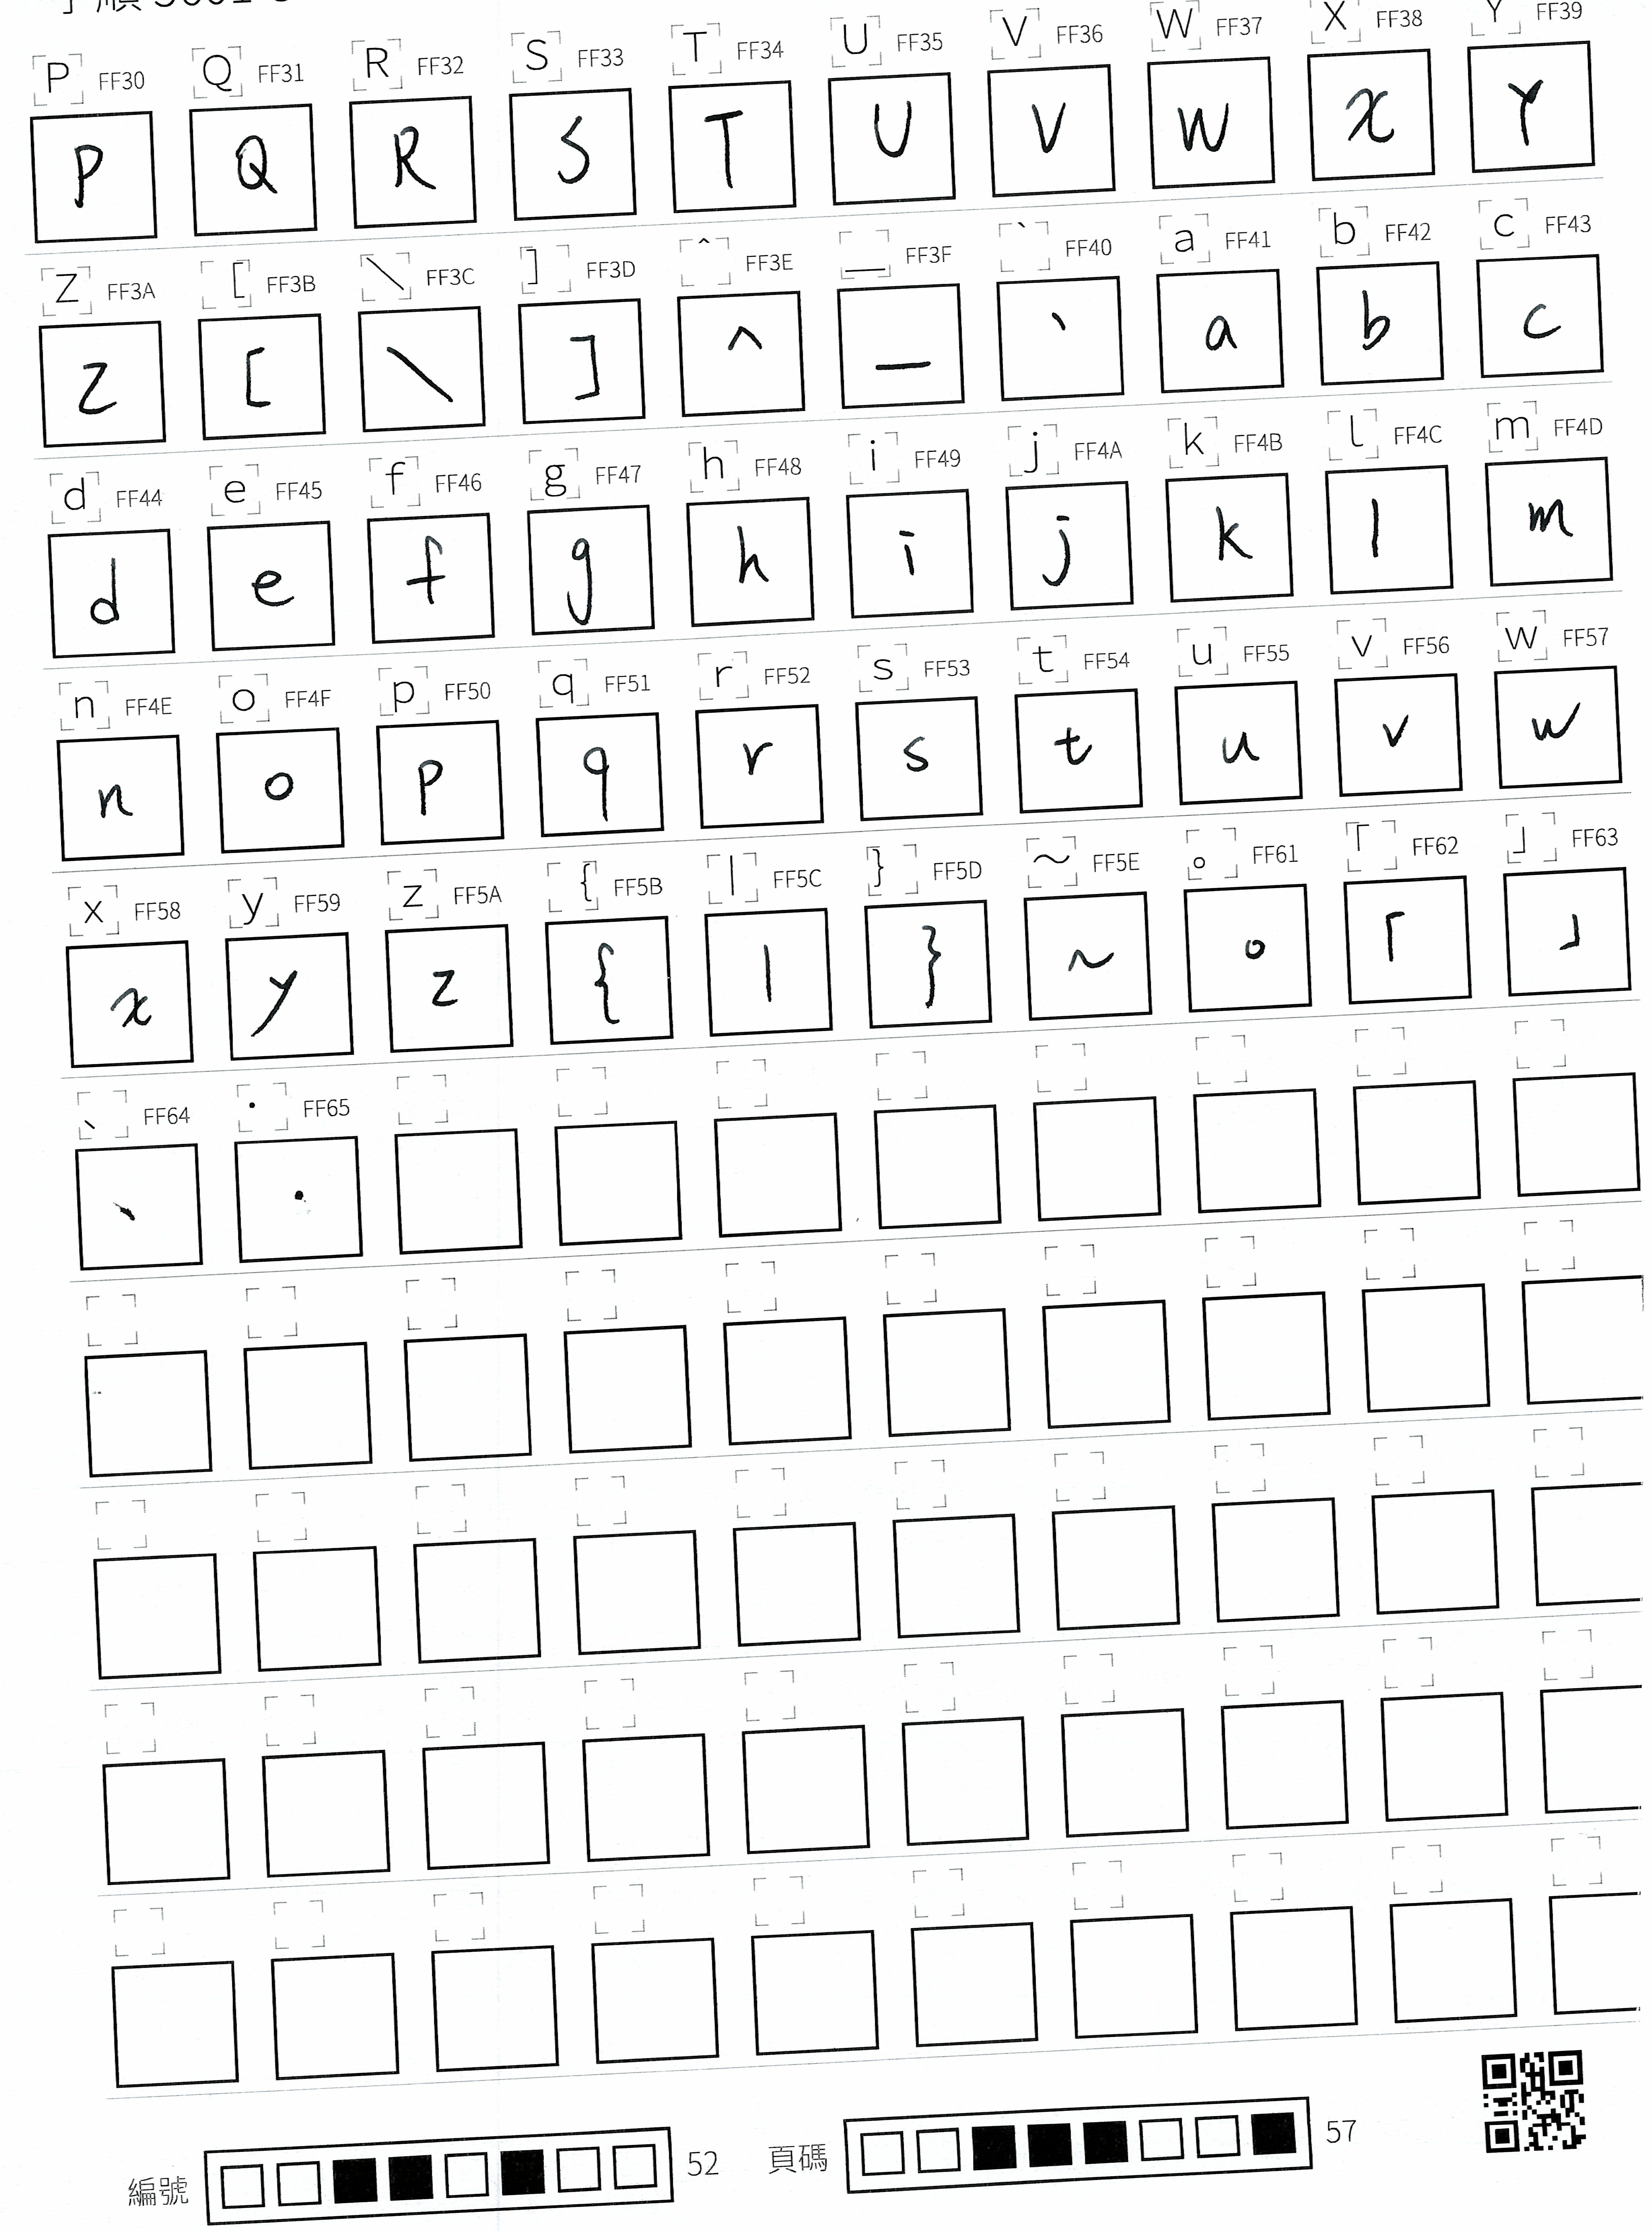 P FF30 Q FF31 R FF32 S FF33 T FF34 U FF35 V FF36 W FF37 X FF38 Y FF39
P Q R S T U V W X Y
Z FF3A [ FF3B \ FF3C ] FF3D ^ FF3E _ FF3F ` FF40 a FF41 b FF42 c FF43
Z [ \ ] ^ _ ` a b c
d FF44 e FF45 f FF46 g FF47 h FF48 i FF49 j FF4A k FF4B l FF4C m FF4D
d e f g h i j k l m
n FF4E o FF4F p FF50 q FF51 r FF52 s FF53 t FF54 u FF55 v FF56 w FF57
n o p q r s t u v w
x FF58 y FF59 z FF5A { FF5B | FF5C } FF5D ~ FF5E 。 FF61 「 FF62 」 FF63
x y z { | } ~ 。 「 」
、 FF64 · FF65
、 ·
編號 52 頁碼 57